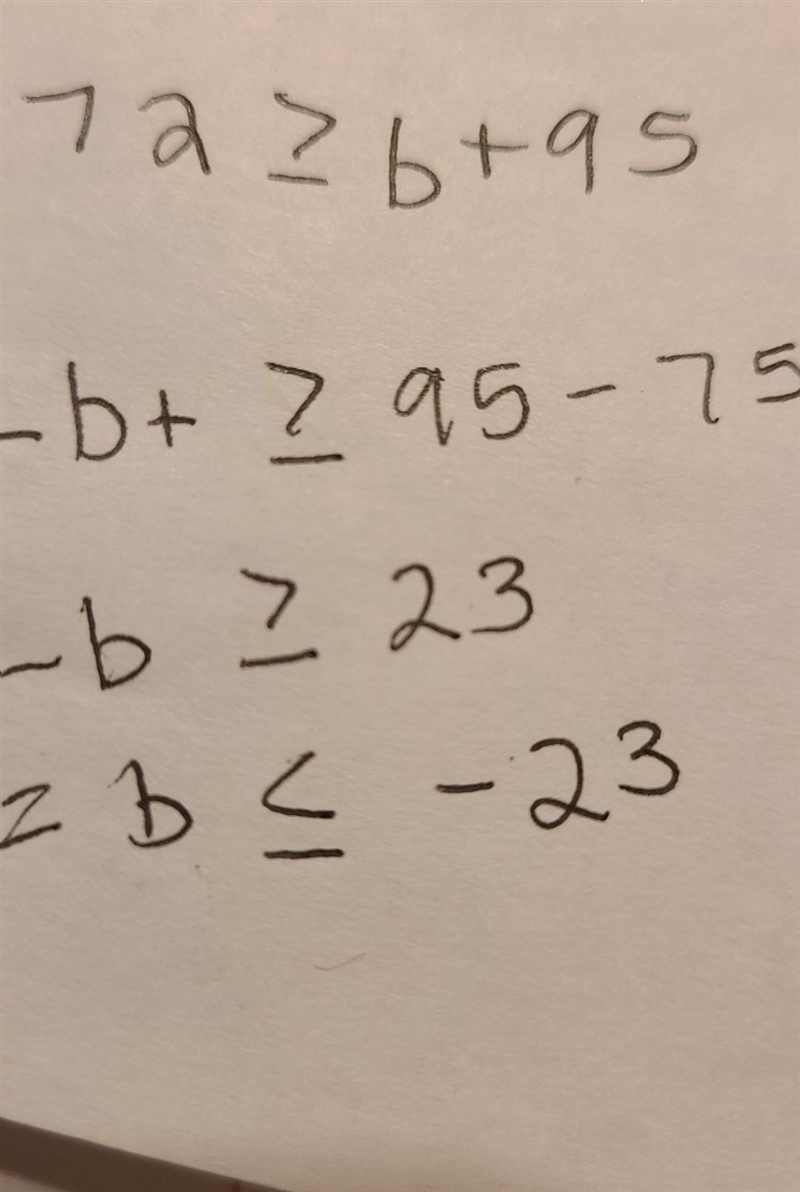 72 ≥ b+95
-b+ ≥ 95-75
-b ≥ 23
= b ≤ -23